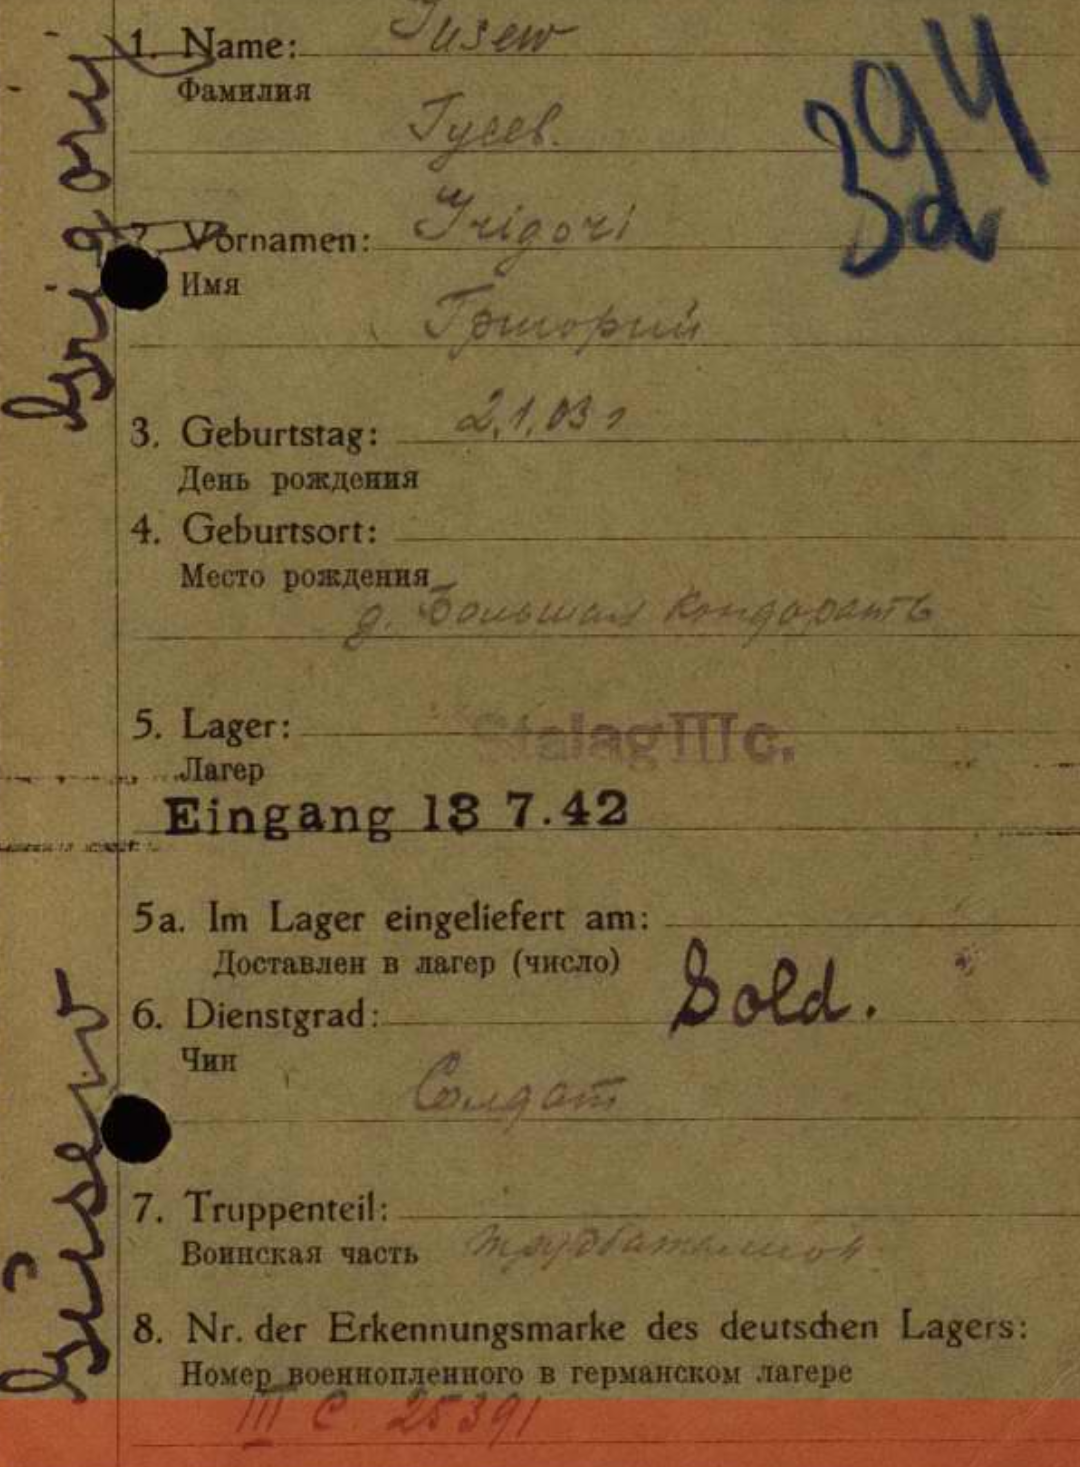 1. Name: Gusew
Фамилия
Гусев.
394
2. Vornamen: Grigori
Имя
Григорий
3. Geburtstag: 2.1.03 г
День рождения
4. Geburtsort:
Место рождения
д. Большая Кондарать
5. Lager: Stalag III c.
Лагер
Eingang 13 7.42
5a. Im Lager eingeliefert am:
Доставлен в лагер (число)
6. Dienstgrad: Sold.
Чин
Солдат
7. Truppenteil:
Воинская часть трудбаталион
8. Nr. der Erkennungsmarke des deutschen Lagers:
Номер военнопленного в германском лагере
III C. 25391
Gusew
Grigory